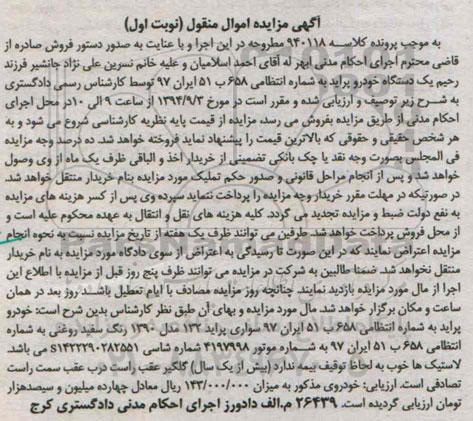 آگهی مزایده اموال منقول (نوبت اول)
به موجب پرونده کلاسه ۹۴۰۱۱۸ مطروحه در این اجرا و با عنایت به صدور دستور فروش صادره از
قاضی محترم اجرای احکام مدنی ابهر له آقای احمد اسلامیان و علیه خانم نسرین علی نژاد جانشیر فرزند
رحیم یک دستگاه خودرو پراید به شماره انتظامی ۶۵۸ ب ۵۱ ایران ۹۷ توسط کارشناس رسمی دادگستری
به شرح زیر توصیف و ارزیابی شده و مقرر است در مورخ ۱۳۹۴/۹/۳ از ساعت ۹ الی ۱۰ در محل اجرای
احکام مدنی از طریق مزایده بفروش می رسد، مزایده از قیمت پایه نظریه کارشناسی شروع می شود و به
هر شخص حقیقی و حقوقی که بالاترین قیمت را پیشنهاد نماید فروخته خواهد شد. ده درصد وجه مزایده
فی المجلس بصورت وجه نقد یا چک بانکی تضمینی از خریدار اخذ و الباقی ظرف یک ماه از وی وصول
خواهد شد و پس از انجام مراحل قانونی و صدور حکم تملیک مورد مزایده بنام خریدار منتقل خواهد شد.
در صورتیکه در مهلت مقرر خریدار وجه مزایده را پرداخت ننماید سپرده وی پس از کسر هزینه های مزایده
به نفع دولت ضبط و مزایده تجدید می گردد. کلیه هزینه های نقل و انتقال به عهده محکوم علیه است و
از محل فروش پرداخت خواهد شد. طرفین می توانند ظرف یک هفته از تاریخ مزایده نسبت به نحوه انجام
مزایده اعتراض نمایند که در این صورت تا رسیدگی به اعتراض از سوی دادگاه مورد مزایده به نام خریدار
منتقل نخواهد شد. ضمنا طالبین به شرکت در مزایده می توانند ظرف پنج روز قبل از مزایده با اطلاع این
اجرا از مال مورد مزایده بازدید نمایند. چنانچه روز مزایده مصادف با ایام تعطیل باشد روز بعد در همان
ساعت و مکان برگزار خواهد شد. مال مورد مزایده و بهای آن طبق نظر کارشناس بدین شرح است: خودرو
پراید به شماره انتظامی ۶۵۸ ب ۵۱ ایران ۹۷ سواری پراید ۱۳۲ مدل ۱۳۹۰ رنگ سفید روغنی به شماره
انتظامی ۶۵۸ ب ۵۱ ایران ۹۷ به شماره موتور ۴۱۹۷۹۹۸ شماره شاسی s۱۴۲۲۲۹۰۲۸۲۵۵۱ می باشد.
لاستیک ها خوب به لحاظ توقیف بیمه ندارد (بیش از یک سال) گلگیر عقب راست درب عقب سمت راست
تصادفی است. ارزیابی: خودروی مذکور به میزان ۱۴۳/۰۰۰/۰۰۰ ریال معادل چهارده میلیون و سیصدهزار
تومان ارزیابی گردیده است. ۲۶۴۳۹ م.الف دادورز اجرای احکام مدنی دادگستری کرج